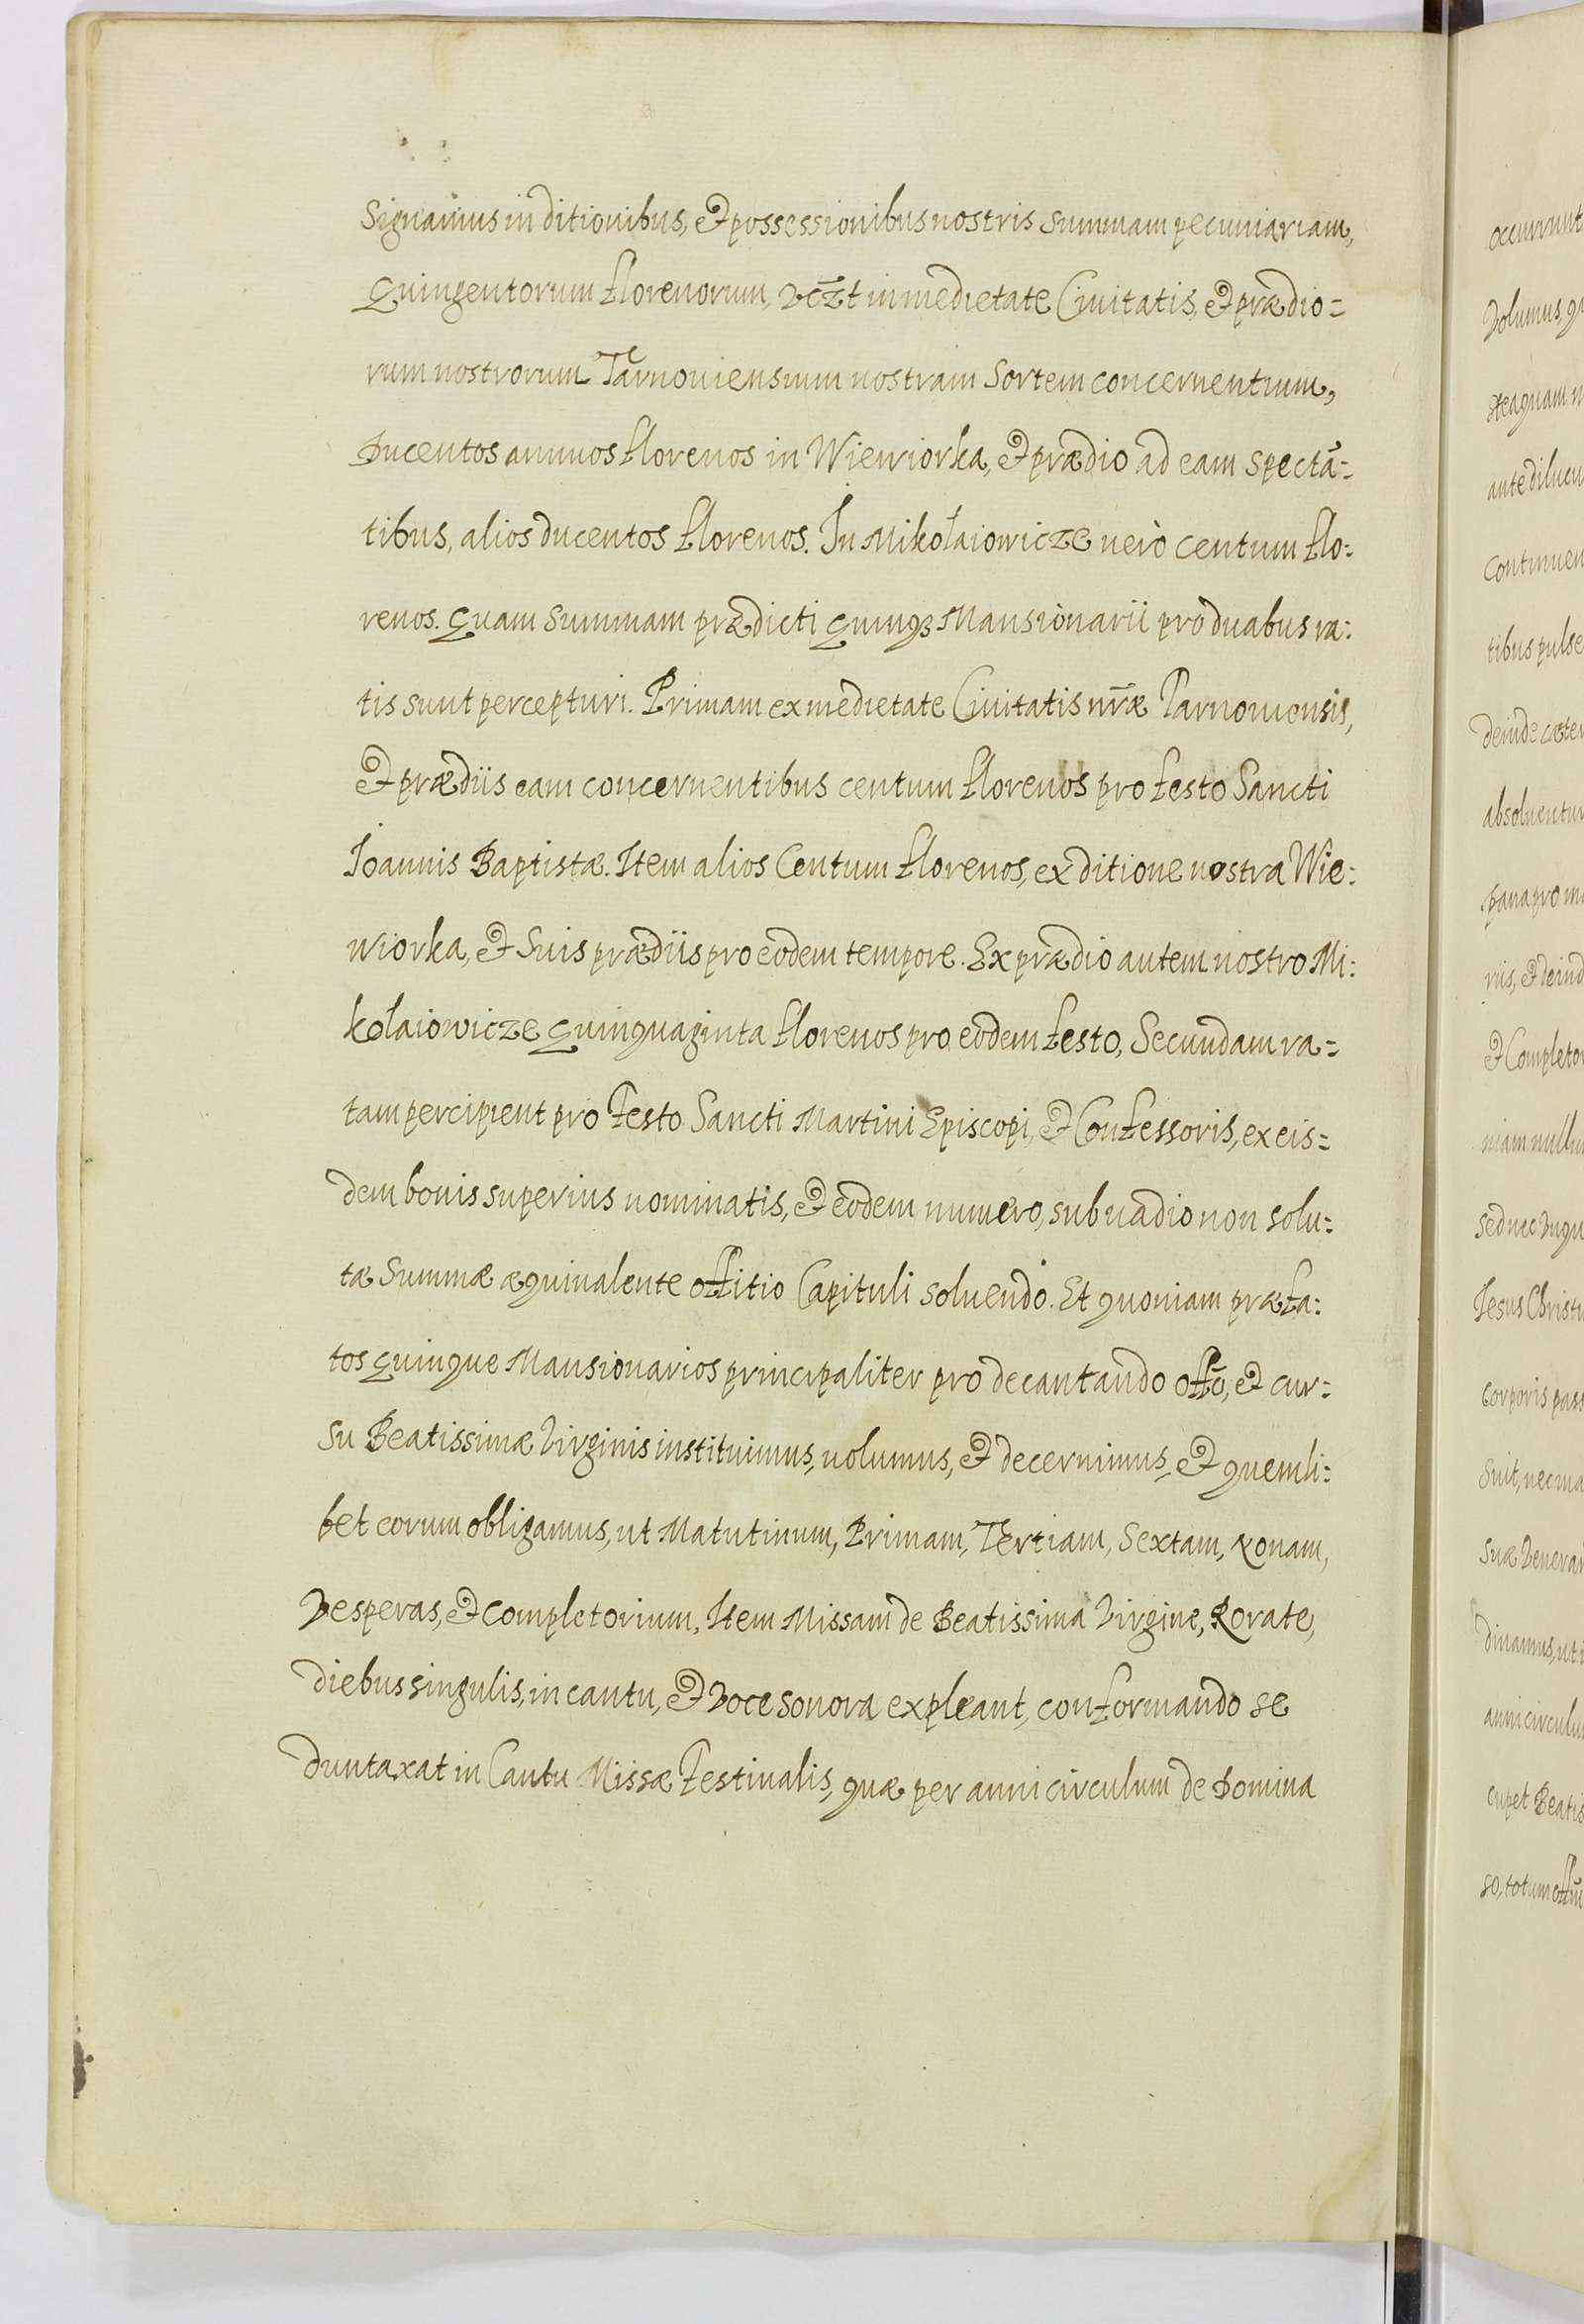 Signamus in ditionibus, & possessionibus nostris summam pecuniariam,
Quingentorum florenorum, vczt in medietate Ciuitatis, & prædio=
rum nostrorum Tarnouiensium nostram sortem concernentium,
Ducentos annuos florenos in Wiewiorka, & prædio ad eam spectā=
tibus, alios ducentos florenos. In Mikołaiowicze uerò centum flo:
renos. Quam summam prædicti quinqȝ Mansionarii pro duabus ra:
tis sunt percepturi. Primam ex medietate Ciuitatis nr̄æ Tarnouiensis,
& prædiis eam concernentibus centum florenos pro festo Sancti
Ioannis Baptistæ. Item alios Centum florenos, ex ditione nostra Wie:
wiorka, & suis prædiis pro eodem tempore. Ex prædio autem nostro Mi:
kołaiowicze quinquaginta florenos pro eodem festo, Secundam ra=
tam percipient pro festo Sancti Martini Episcopi, & Confessoris, ex eis=
dem bonis superius nominatis, & eodem numero, sub uadio non solu=
tæ summæ æquiualente offitio Capituli soluendo. Et quoniam præfa:
tos quinque Mansionarios principaliter pro decantando offō, & cur=
su Beatissimæ Virginis instituimus, uolumus, & decernimus, & quemli:
bet eorum obligamus, ut Matutinum, Primam, Tertiam, Sextam, Nonam,
Vesperas, & Completorium, Item Missam de Beatissima Virgine, Rorate,
diebus singulis, in cantu, & Voce sonora expleant, conformando se
duntaxat in Cantu Missæ festiualis, quæ per anni circulum de Domina
occurrunt
Volumus, q
ante dilucu
continuen
tibus pulse
deinde cæter
absoluentur
riis, & deind
& Completor
niam nullu
sed nec
Iesus Christu
corporis pass
suit, nec ma
suæ Veneran
dinamus, ut i
anni circulu
cupet Beatis
so, totum offm